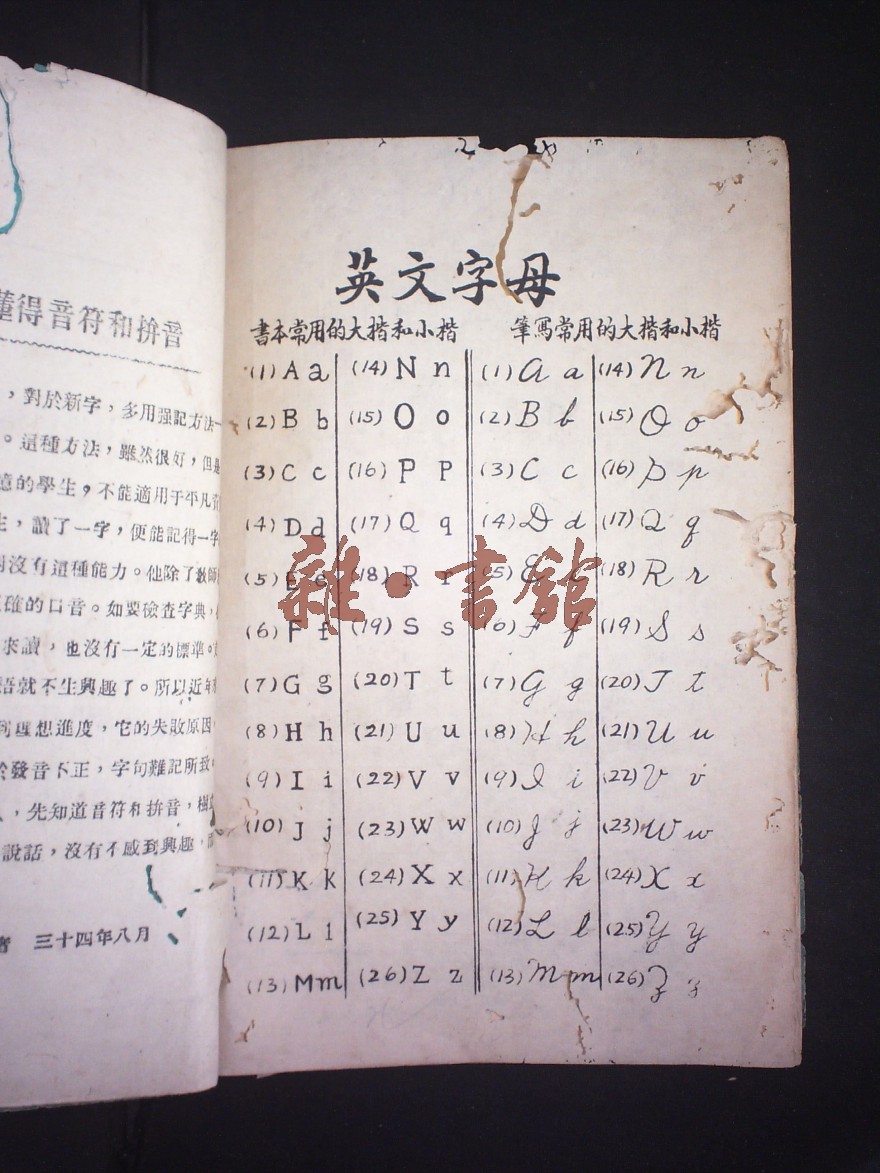 懂得音符和拚音
，對於新字，多用强記方法
。這種方法，雖然很好，但是
憶的學生，不能適用于平凡
生，讀了一字，便能記得一字
沒有這種能力。他除了教師
確的口音。如要檢查字典，
來讀，也沒有一定的標準。
語就不生興趣了。所以近年
理想進度，它的失敗原因
於發音不正，字句難記所致
，先知道音符和拚音，
說話，沒有不感到興趣，
者 三十四年八月
英文字母
書本常用的大楷和小楷 筆寫常用的大楷和小楷
(1) A a (14) N n (1) A a (14) N n
(2) B b (15) O o (2) B b (15) O o
(3) C c (16) P P (3) C c (16) P p
(4) D d (17) Q q (4) D d (17) Q q
(5) E e (18) R r (5) E e (18) R r
(6) F f (19) S s (6) F f (19) S s
(7) G g (20) T t (7) G g (20) T t
(8) H h (21) U u (8) H h (21) U u
(9) I i (22) V v (9) I i (22) V v
(10) J j (23) W w (10) J j (23) W w
(11) K k (24) X x (11) K k (24) X x
(12) L l (25) Y y (12) L l (25) Y y
(13) M m (26) Z z (13) M m (26) Z z
雜·書館